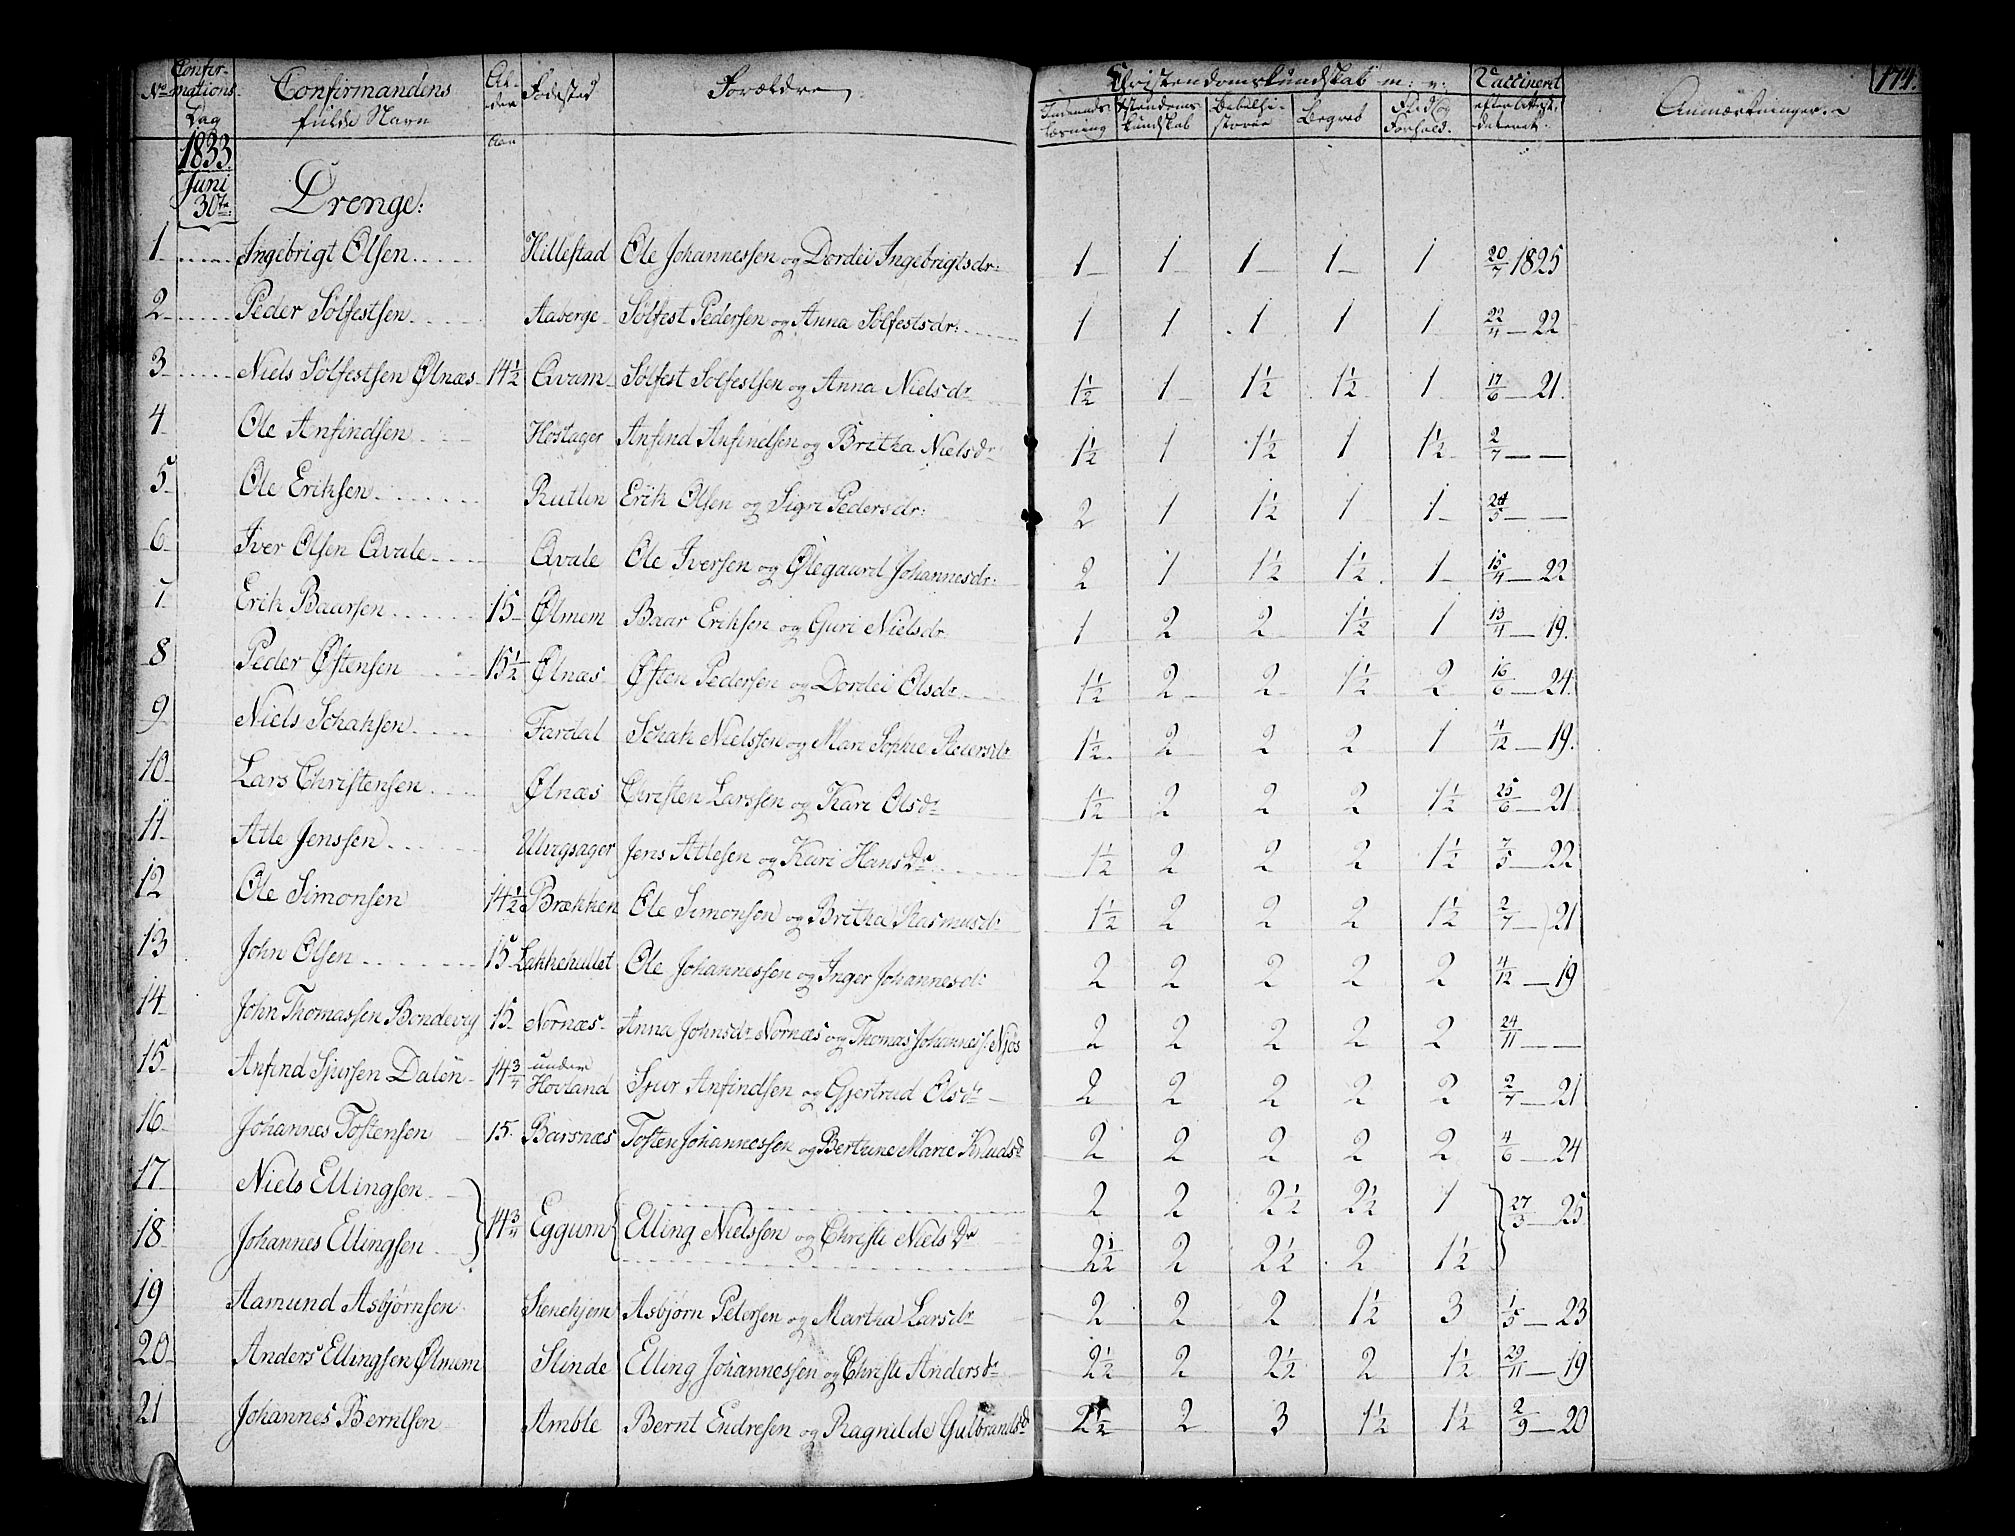 174.
No Confirmations Dag | Confirmandens fulde Navn | Alder Aar | Fødested | Forældre | Christendomskundskab m: v: | Vaccineret | Anmærkninger.
Indenads Læsning | Kundskab | Bibelhistorie | Begreb | Flid og Forhold.
1833
Juni
30te
Drenge:
1 Ingebrigt Olsen Hillestad Ole Johannessen og Dordei Ingebrigtsdr: 1 1 1 1 1 20/7 1825
2 Peder Sølfestsen Aaberge Sølfest Pedersen og Anna Sølfestsdr: 1 1 1 1 1 22/4 22
3 Niels Sølfestsen Ølnæs 14½ Qvam Sølfest Sølfestsen og Anna Nielsdr 1½ 1 1½ 1½ 1 17/6 21.
4 Ole Anfindsen Høstager Anfind Anfindsen og Britha Nielsdr 1½ 1 1½ 1 1½ 2/7 —
5 Ole Eriksen Rutlin Erik Olsen og Sigri Pedersdr: 2 1 1½ 1 1 24/5 —
6 Iver Olsen Qvale Qvale Ole Iversen og Ølegaard Johannesdr: 2 1 1½ 1½ 1 15/4 22
7 Erik Baarsen 15 Ølmem Baar Eriksen og Guri Nielsdr 1 2 2 1½ 1 13/4 19.
8 Peder Østensen 15½ Ølnæs Østen Pedersen og Dordei Olsdr 1½ 2 2 1½ 2 16/6 24.
9 Niels Schaksen Fardal Schak Nielssen og Mari Sophie Pedersdr 1½ 2 2 2 1 4/12 19.
10 Lars Christensen Ølnæs Christen Larssen og Kari Olsdr 1½ 2 2 2 1½ 25/6 21
11 Atle Jenssen Ulvgsager Jens Atlesen og Kari Hans Dr 1½ 2 2 2 1½ 7/5 22
12 Ole Simonsen 14½ Brækken Ole Simonsen og Britha Rasmusdr 1½ 2 2 2 1½ 2/7 21
13 John Olsen 15 Lækkehullet Ole Johannessen og Inger Johannesdr 2 2 2 2 2 4/12 19
14 John Thomassen Bondevig 15 Nornæs Anna Johnsdr Nornæs og Thomas Johanness. Njøs 2 2 2 2 2 24/11 —
15 Anfind Sjursen Dalen 14¾ under Hovland Sjur Anfindsen og Gjertrud Olsdr 2 2 2 2 2 2/7 21
16 Johannes Tostensen 15 Barsnæs Tosten Johannessen og Bertine Marie Knudsdr 2 2 2 2 2 4/6 24
17 Niels Ellingsen 2 2 2½ 2½ 1
14¾ Eggum Elling Nielssen og Christi Niels Dr 27/3 25
18 Johannes Ellingsen 2½ 2 2½ 2 1½
19 Aamund Asbjørnsen Stenehjem Asbjørn Pedersen og Martha Larsdr 2 2 2 1½ 3 1/5 23
20 Anders Ellingsen Ølmem Slinde Elling Johannessen og Christi Andersdr 2½ 2 2½ 2 1½ 29/11 19
21 Johannes Berntsen Amble Bernt Endresen og Ragnilde Gulbrandsdr 2½ 2 3 1½ 1½ 2/9 20